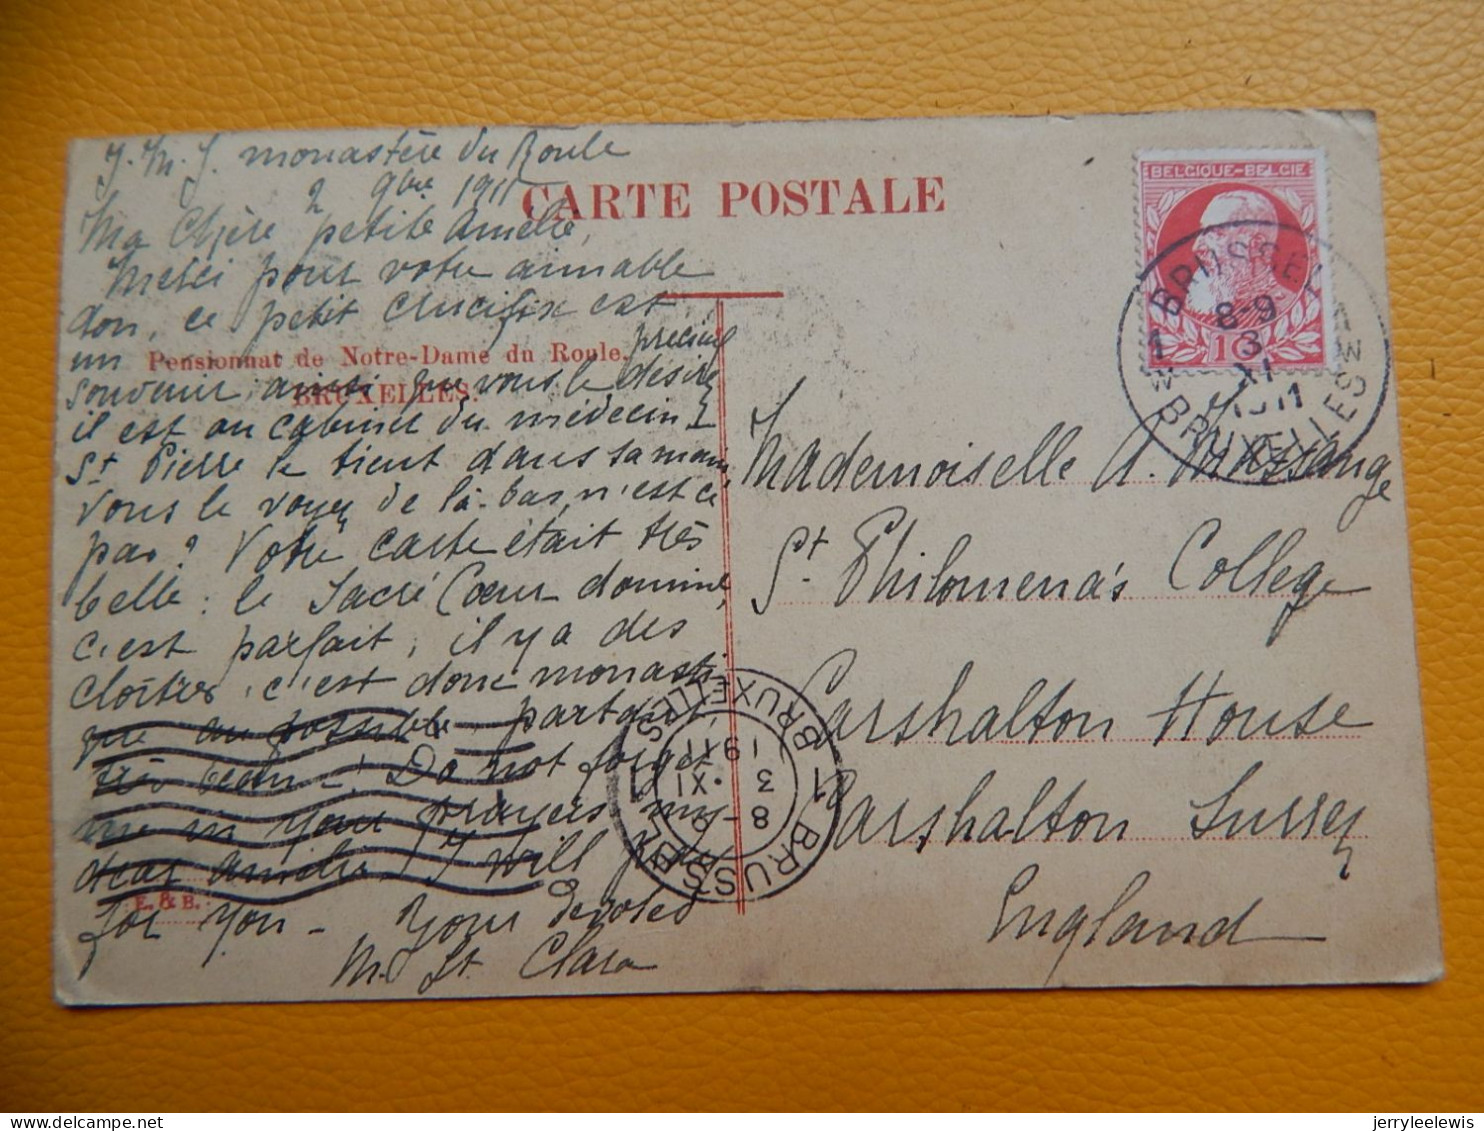 J. M. J. monastère du Roule
2 9bre 1911
CARTE POSTALE
Ma Chère petite Amélie,
Merci pour votre aimable
don, ce petit crucifix est
un précieux
Pensionnat de Notre-Dame du Roule.
BRUXELLES.
souvenir ainsi que vous le désirez
il est au cabinet du médecin
St Pierre le tient dans sa main
vous le voyez de là-bas, n'est ce
pas? Votre carte était très
belle: le Sacré Coeur domine,
c'est parfait, il y a des
cloîtres, c'est donc monasti
que au possible, partout,
très beau! Do not forget
me in your prayers my
dear Amélie I will pray
for you - Your devoted
M. St. Clara
E. & B.
BELGIQUE-BELGIE
10
1 BRUSSEL 1
8-9
3
XI
1911
BRUXELLES
Mademoiselle A.
St Philomena's College
Carshalton House
Carshalton Surrey
England
1 BRUSSEL 1
8-9
3 XI
1911
BRUXELLES
jerryleelewis